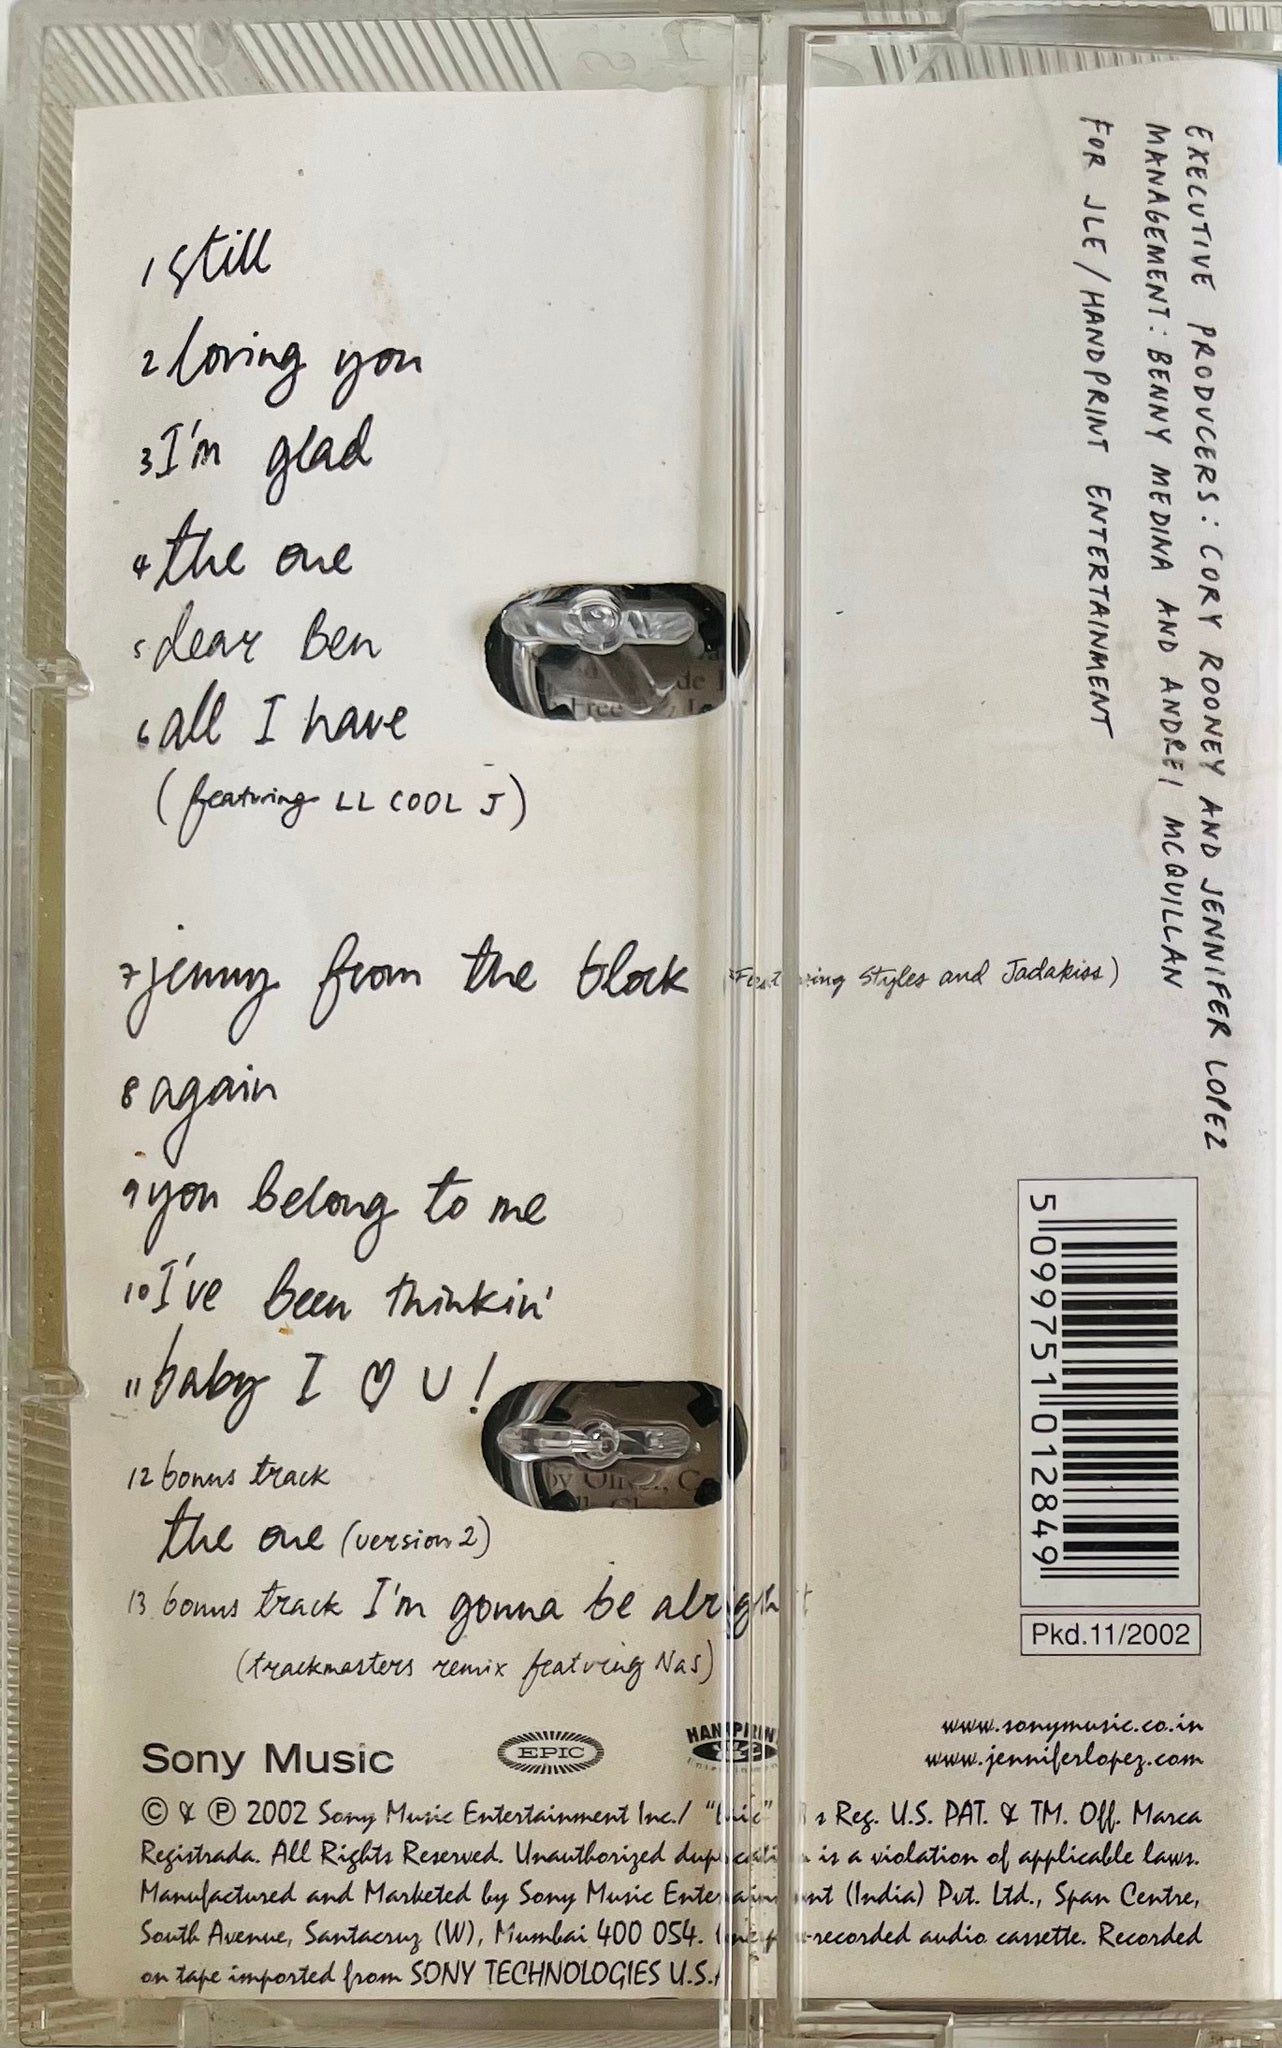 1 Still
2 loving you
3 I'm glad
4 the one
5 dear Ben
6 all I have
(featuring LL COOL J)
7 jenny from the block (Featuring Styles and Jadakiss)
8 again
9 you belong to me
10 I've been thinkin'
11 baby I ♡ U!
12 bonus track
the one (version 2)
13 bonus track I'm gonna be alright
(trackmasters remix featuring Nas)
EXECUTIVE PRODUCERS: CORY ROONEY AND JENNIFER LOPEZ
MANAGEMENT: BENNY MEDINA AND ANDREI MCQUILLAN
FOR JLE/HANDPRINT ENTERTAINMENT
5 099751 012849
Pkd.11/2002
www.sonymusic.co.in
www.jenniferlopez.com
Sony Music
EPIC
HANDPRINT
Entertainment
© & ℗ 2002 Sony Music Entertainment Inc./ "Epic" is Reg. U.S. PAT. & TM. Off. Marca
Registrada. All Rights Reserved. Unauthorized duplication is a violation of applicable laws.
Manufactured and Marketed by Sony Music Entertainment (India) Pvt. Ltd., Span Centre,
South Avenue, Santacruz (W), Mumbai 400 054. One pre-recorded audio cassette. Recorded
on tape imported from SONY TECHNOLOGIES U.S.A